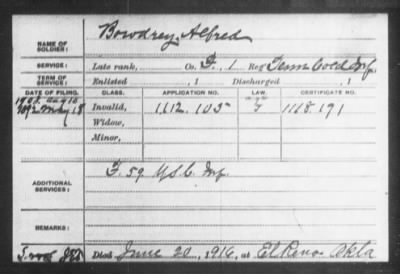 NAME OF SOLDIER: Bowdrey, Alfred
SERVICE: Late rank, Co. F, 1 Reg Tenn Cold Inf.
TERM OF SERVICE: Enlisted , 1 Discharged , 1
DATE OF FILING. CLASS. APPLICATION NO. LAW. CERTIFICATE NO.
1892 May 18 Invalid, 1112.105 1168.191
Widow,
Minor,
ADDITIONAL SERVICES: F. 59. U.S.C. Inf.
REMARKS:
Died June 20, 1916, at El Reno Okla